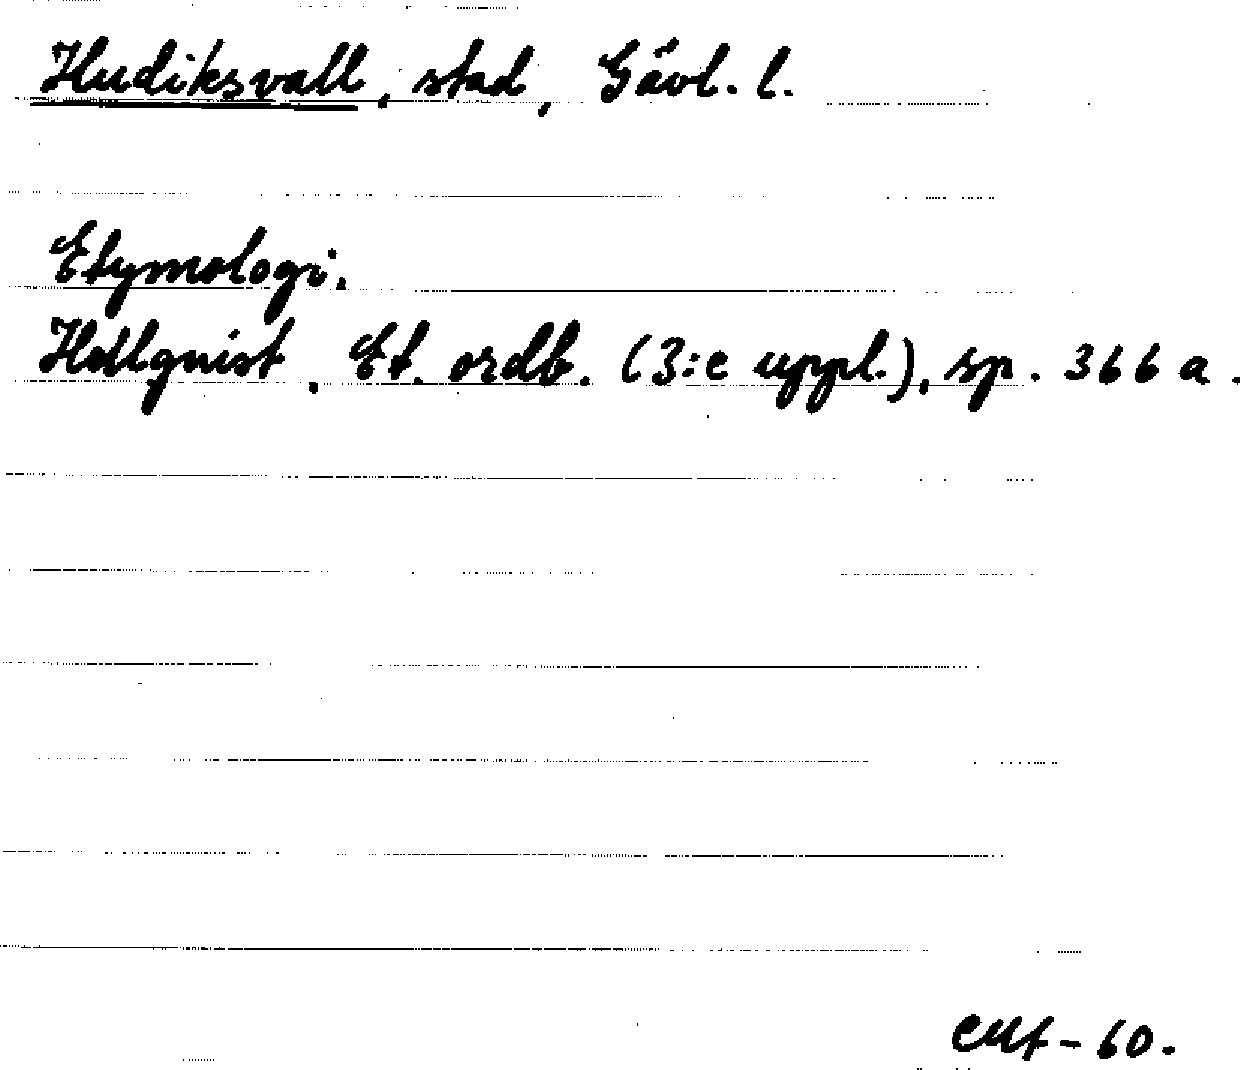 Hudiksvall, stad, Gävl. l.
Etymologi.
Hellquist, Et. ordb. (3:e uppl.), sp. 366 a.
-60.